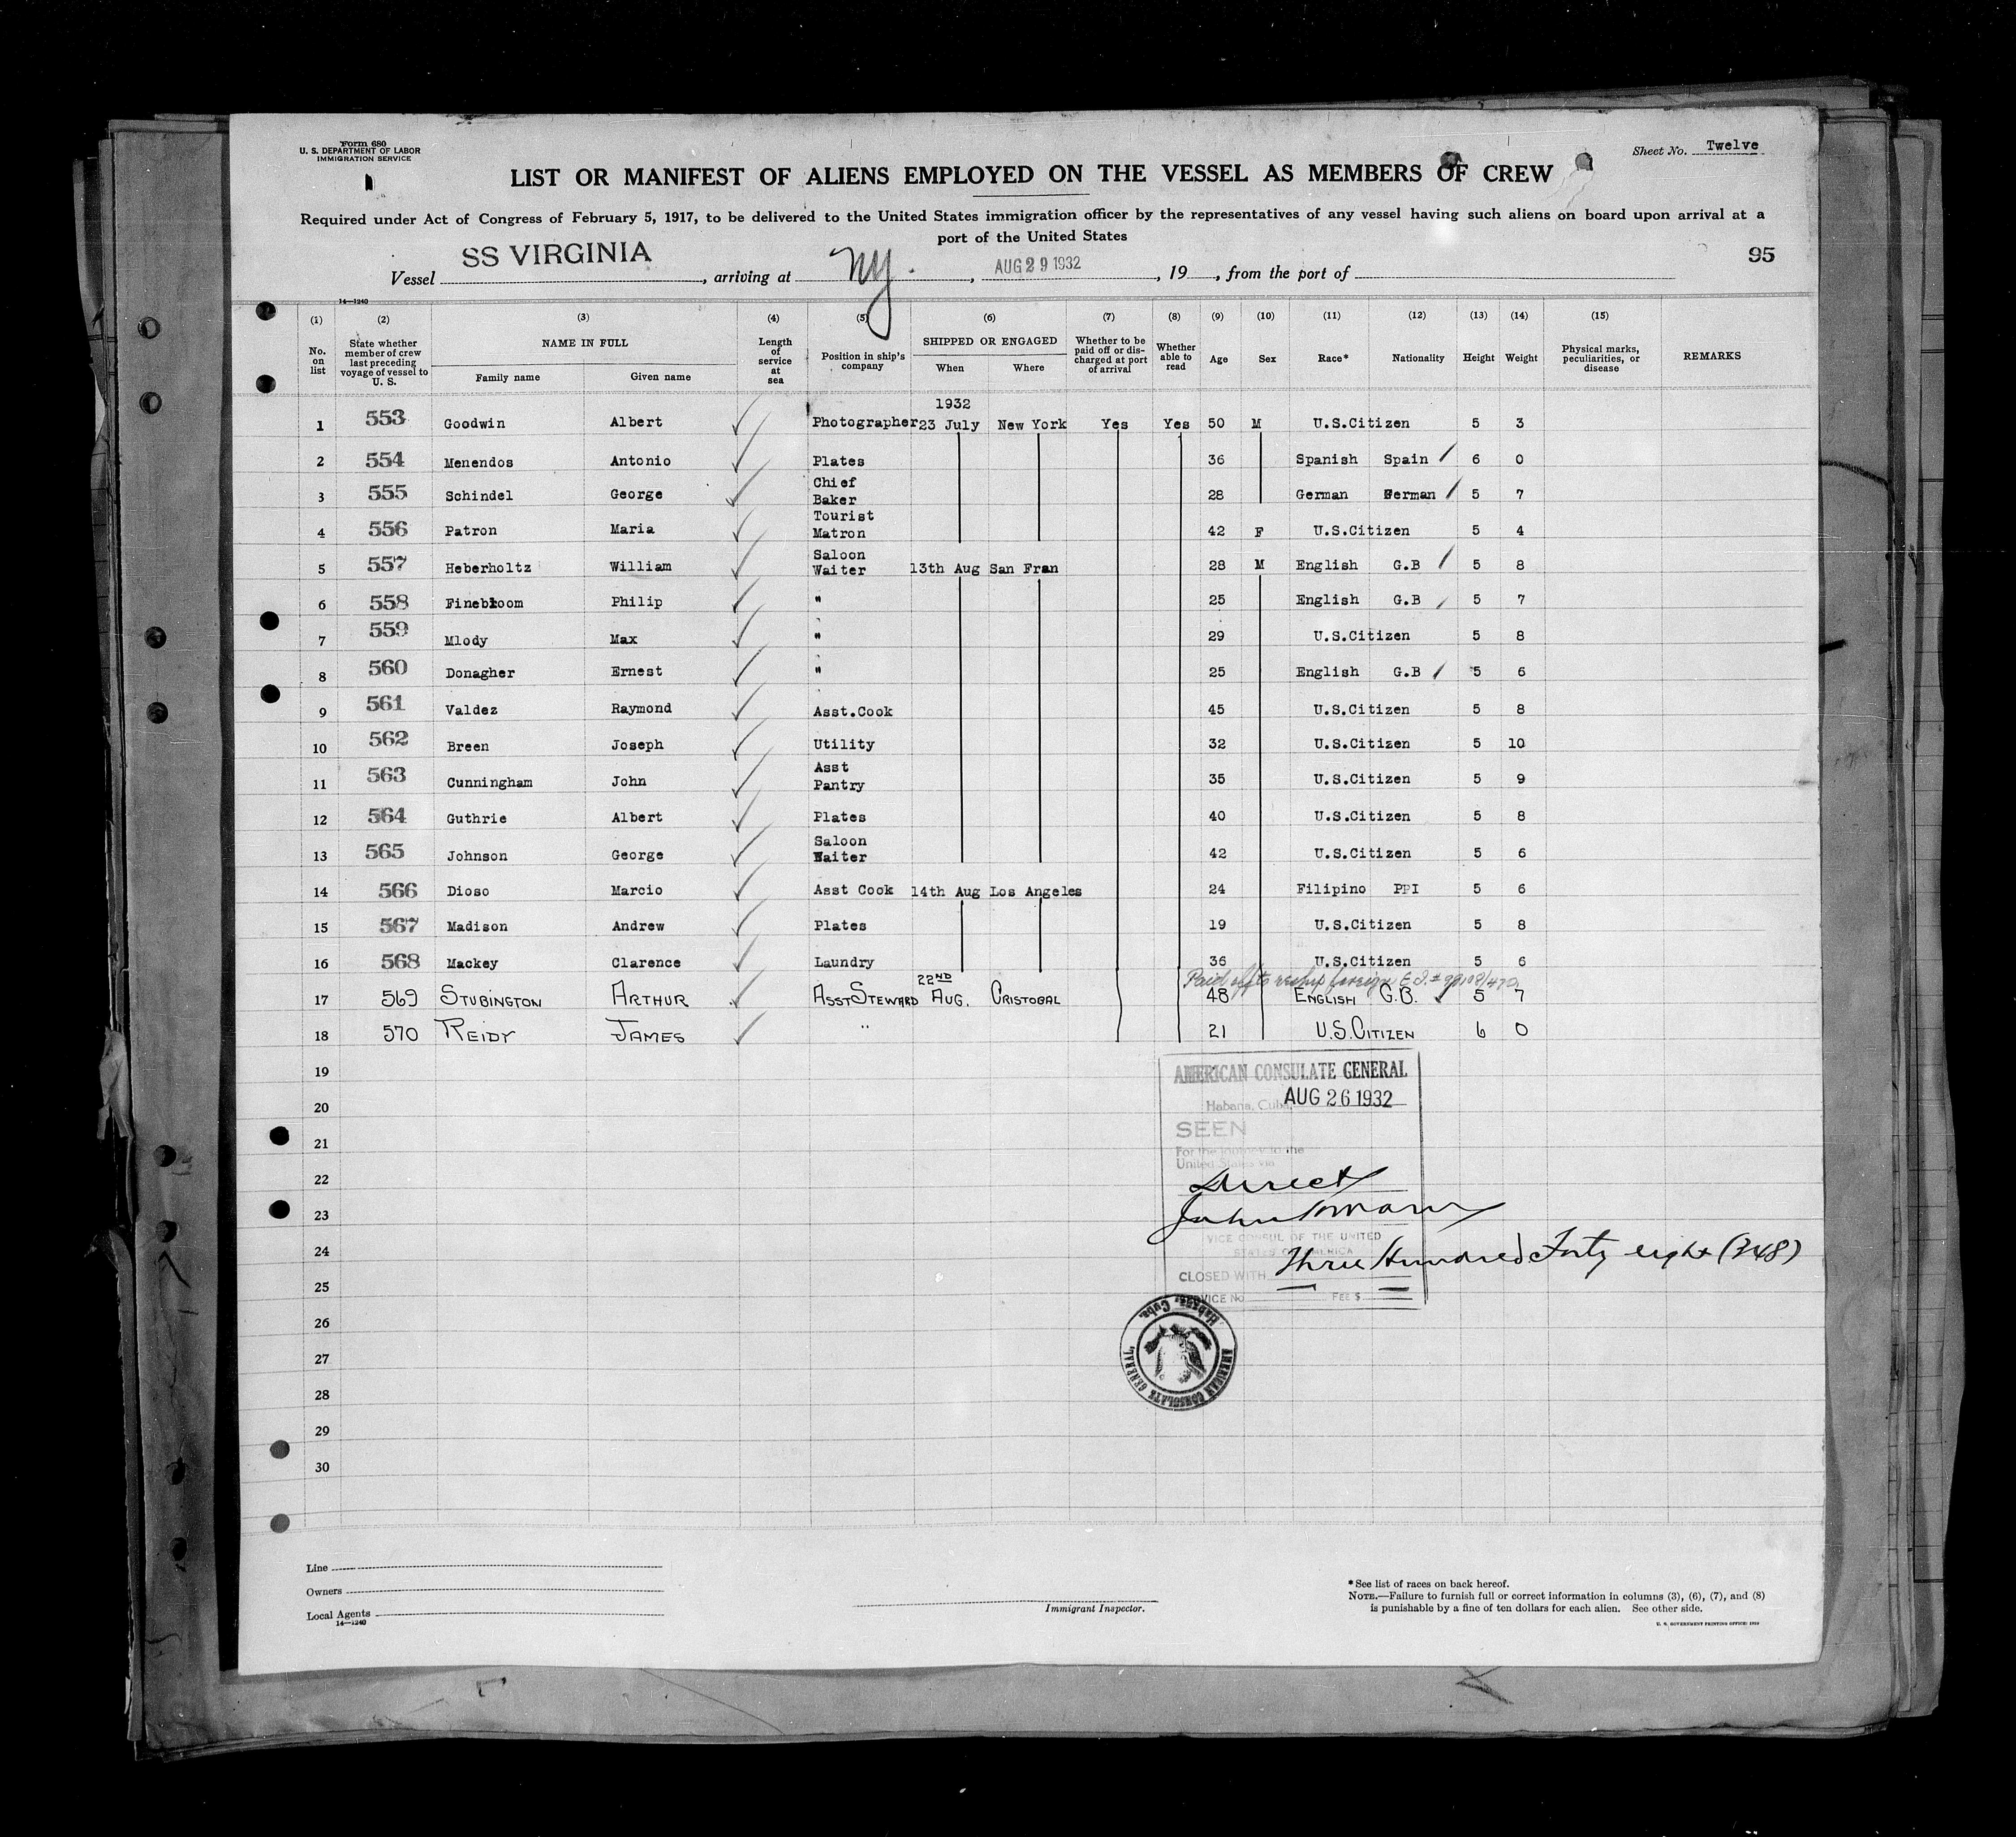 Form 680
U. S. DEPARTMENT OF LABOR
IMMIGRATION SERVICE
Sheet No. Twelve
LIST OR MANIFEST OF ALIENS EMPLOYED ON THE VESSEL AS MEMBERS OF CREW
Required under Act of Congress of February 5, 1917, to be delivered to the United States immigration officer by the representatives of any vessel having such aliens on board upon arrival at a
port of the United States
95
Vessel SS VIRGINIA, arriving at NY., AUG 29 1932, 19, from the port of
14—1240
(1) (2) (3) (4) (5) (6) (7) (8) (9) (10) (11) (12) (13) (14) (15)
No. on list
State whether member of crew last preceding voyage of vessel to U. S.
NAME IN FULL
Family name Given name
Length of service at sea
Position in ship's company
SHIPPED OR ENGAGED
When Where
Whether to be paid off or discharged at port of arrival
Whether able to read
Age Sex Race* Nationality Height Weight
Physical marks, peculiarities, or disease
REMARKS
1932
1 553 Goodwin Albert Photographer 23 July New York Yes Yes 50 M U.S.Citizen 5 3
2 554 Menendos Antonio Plates 36 Spanish Spain 6 0
3 555 Schindel George Chief Baker 28 German German 5 7
4 556 Patron Maria Tourist Matron 42 F U.S.Citizen 5 4
5 557 Heberholtz William Saloon Waiter 13th Aug San Fran 28 M English G.B 5 8
6 558 Finebloom Philip " 25 English G.B 5 7
7 559 Mlody Max " 29 U.S.Citizen 5 8
8 560 Donagher Ernest " 25 English G.B 5 6
9 561 Valdez Raymond Asst.Cook 45 U.S.Citizen 5 8
10 562 Breen Joseph Utility 32 U.S.Citizen 5 10
11 563 Cunningham John Asst Pantry 35 U.S.Citizen 5 9
12 564 Guthrie Albert Plates 40 U.S.Citizen 5 8
13 565 Johnson George Saloon Waiter 42 U.S.Citizen 5 6
14 566 Dioso Marcio Asst Cook 14th Aug Los Angeles 24 Filipino PPI 5 6
15 567 Madison Andrew Plates 19 U.S.Citizen 5 8
16 568 Mackey Clarence Laundry 36 U.S.Citizen 5 6
Paid off to reship foreign
17 569 STUBINGTON ARTHUR ASST STEWARD 22ND AUG. CRISTOBAL 48 ENGLISH G.B. 5 7
18 570 REIDY JAMES " 21 U.S.CITIZEN 6 0
19
20
21
22
23
24
25
26
27
28
29
30
AMERICAN CONSULATE GENERAL
AUG 26 1932
Habana, Cuba
SEEN
For the journey to the
United States via
Direct
VICE CONSUL OF THE UNITED
STATES OF AMERICA
Three Hundred Forty eight (348)
CLOSED WITH
SERVICE No FEE $
AMERICAN CONSULATE GENERAL, Habana, Cuba.
Line
Owners
Local Agents
14—1240
Immigrant Inspector.
*See list of races on back hereof.
NOTE.—Failure to furnish full or correct information in columns (3), (6), (7), and (8)
is punishable by a fine of ten dollars for each alien. See other side.